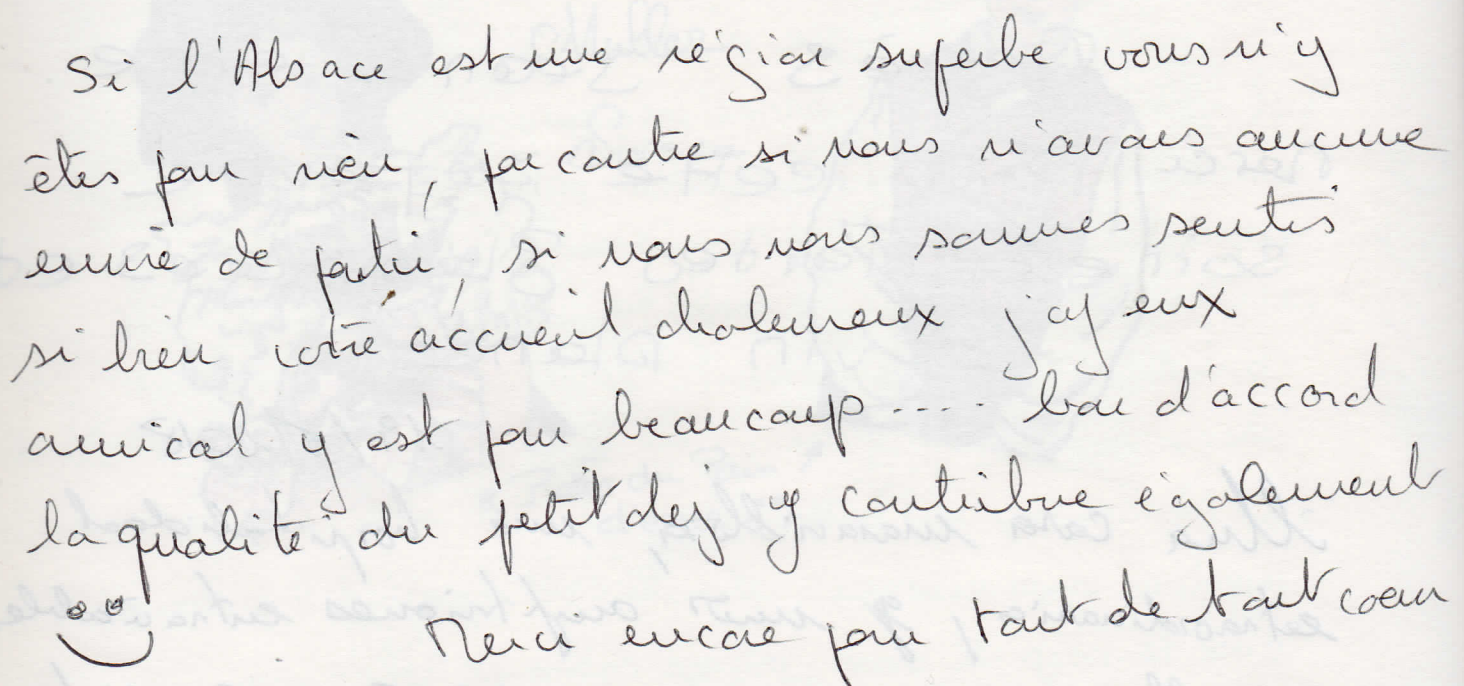 Si l'Alsace est une région superbe vous n'y
êtes pour rien, par contre si nous n'avons aucune
envie de partir, si nous nous sommes sentis
si bien votre accueil chaleureux joyeux
amical y est pour beaucoup..... bon d'accord
la qualité du petit dej y contribue également
Merci encore pour tout de tout coeur